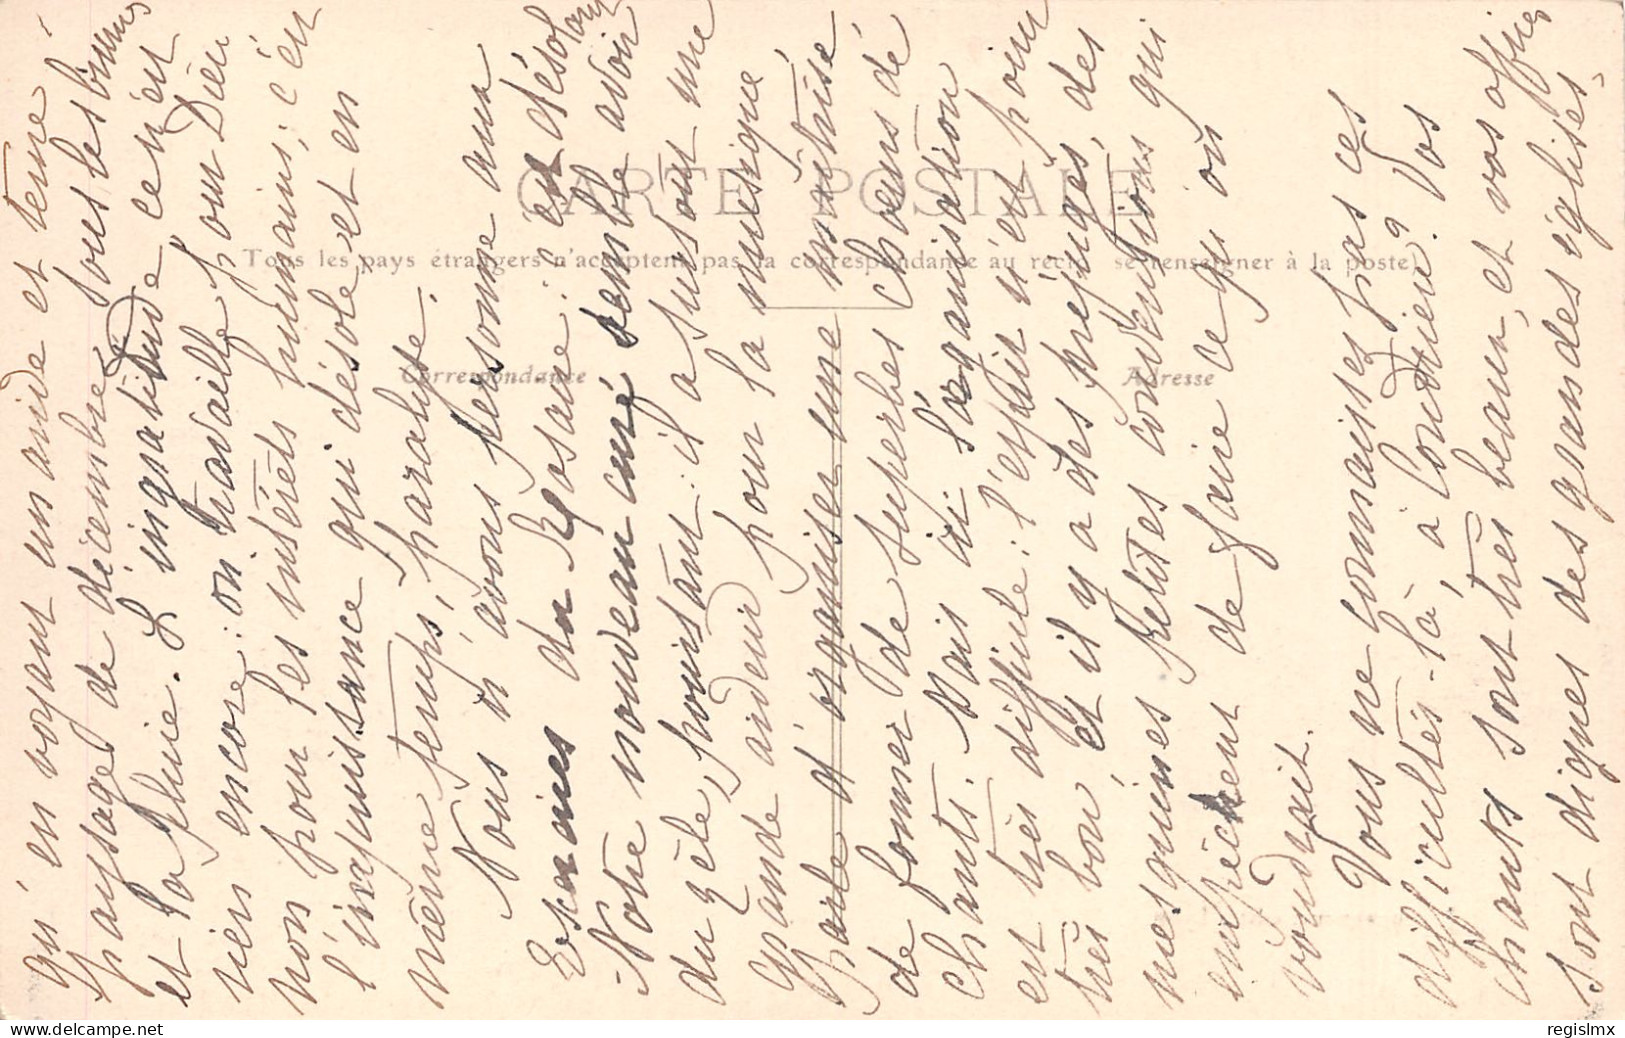 qu'en voyant un aride et terne
paysage de décembre, sous les brumes
et la pluie. L'ingratitude, ce n'est
rien encore : on travaille pour Dieu
non pour les intérêts humains ; c'est
l'impuissance qui désole et en
même temps, paralyse.
Nous n'avons personne aux
Exercices du Rosaire : c'est désolant
Notre nouveau curé semble avoir
du zèle, pourtant : il a surtout une
grande ardeur pour la musique
parle d'organiser une maîtrise
de former de superbes chœurs de
chants. Mais ici l'organisation
est très difficile : l'esprit n'est pas
très bon, et il y a des préjugés, des
mesquines petites conventions qui
empêchent de faire ce qu'on
voudrait.
Vous ne connaissez pas ces
difficultés-là, à Condrieu ? Vos
chants sont très beaux, et vos offices
sont dignes des grandes églises
CARTE POSTALE
Tous les pays étrangers n'acceptent pas la correspondance au recto (se renseigner à la poste)
Correspondance
Adresse
regislmx